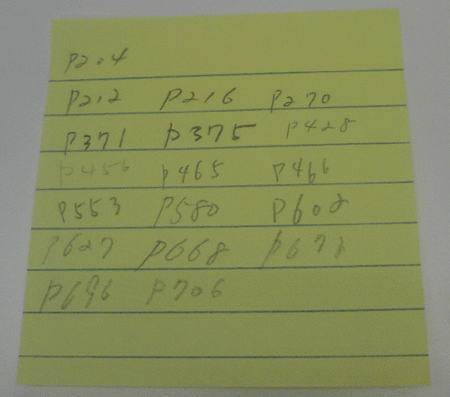 P204
P212 P216 P270
P371 P375 P428
P456 P465 P466
P553 P580 P608
P627 P668 P678
P696 P706